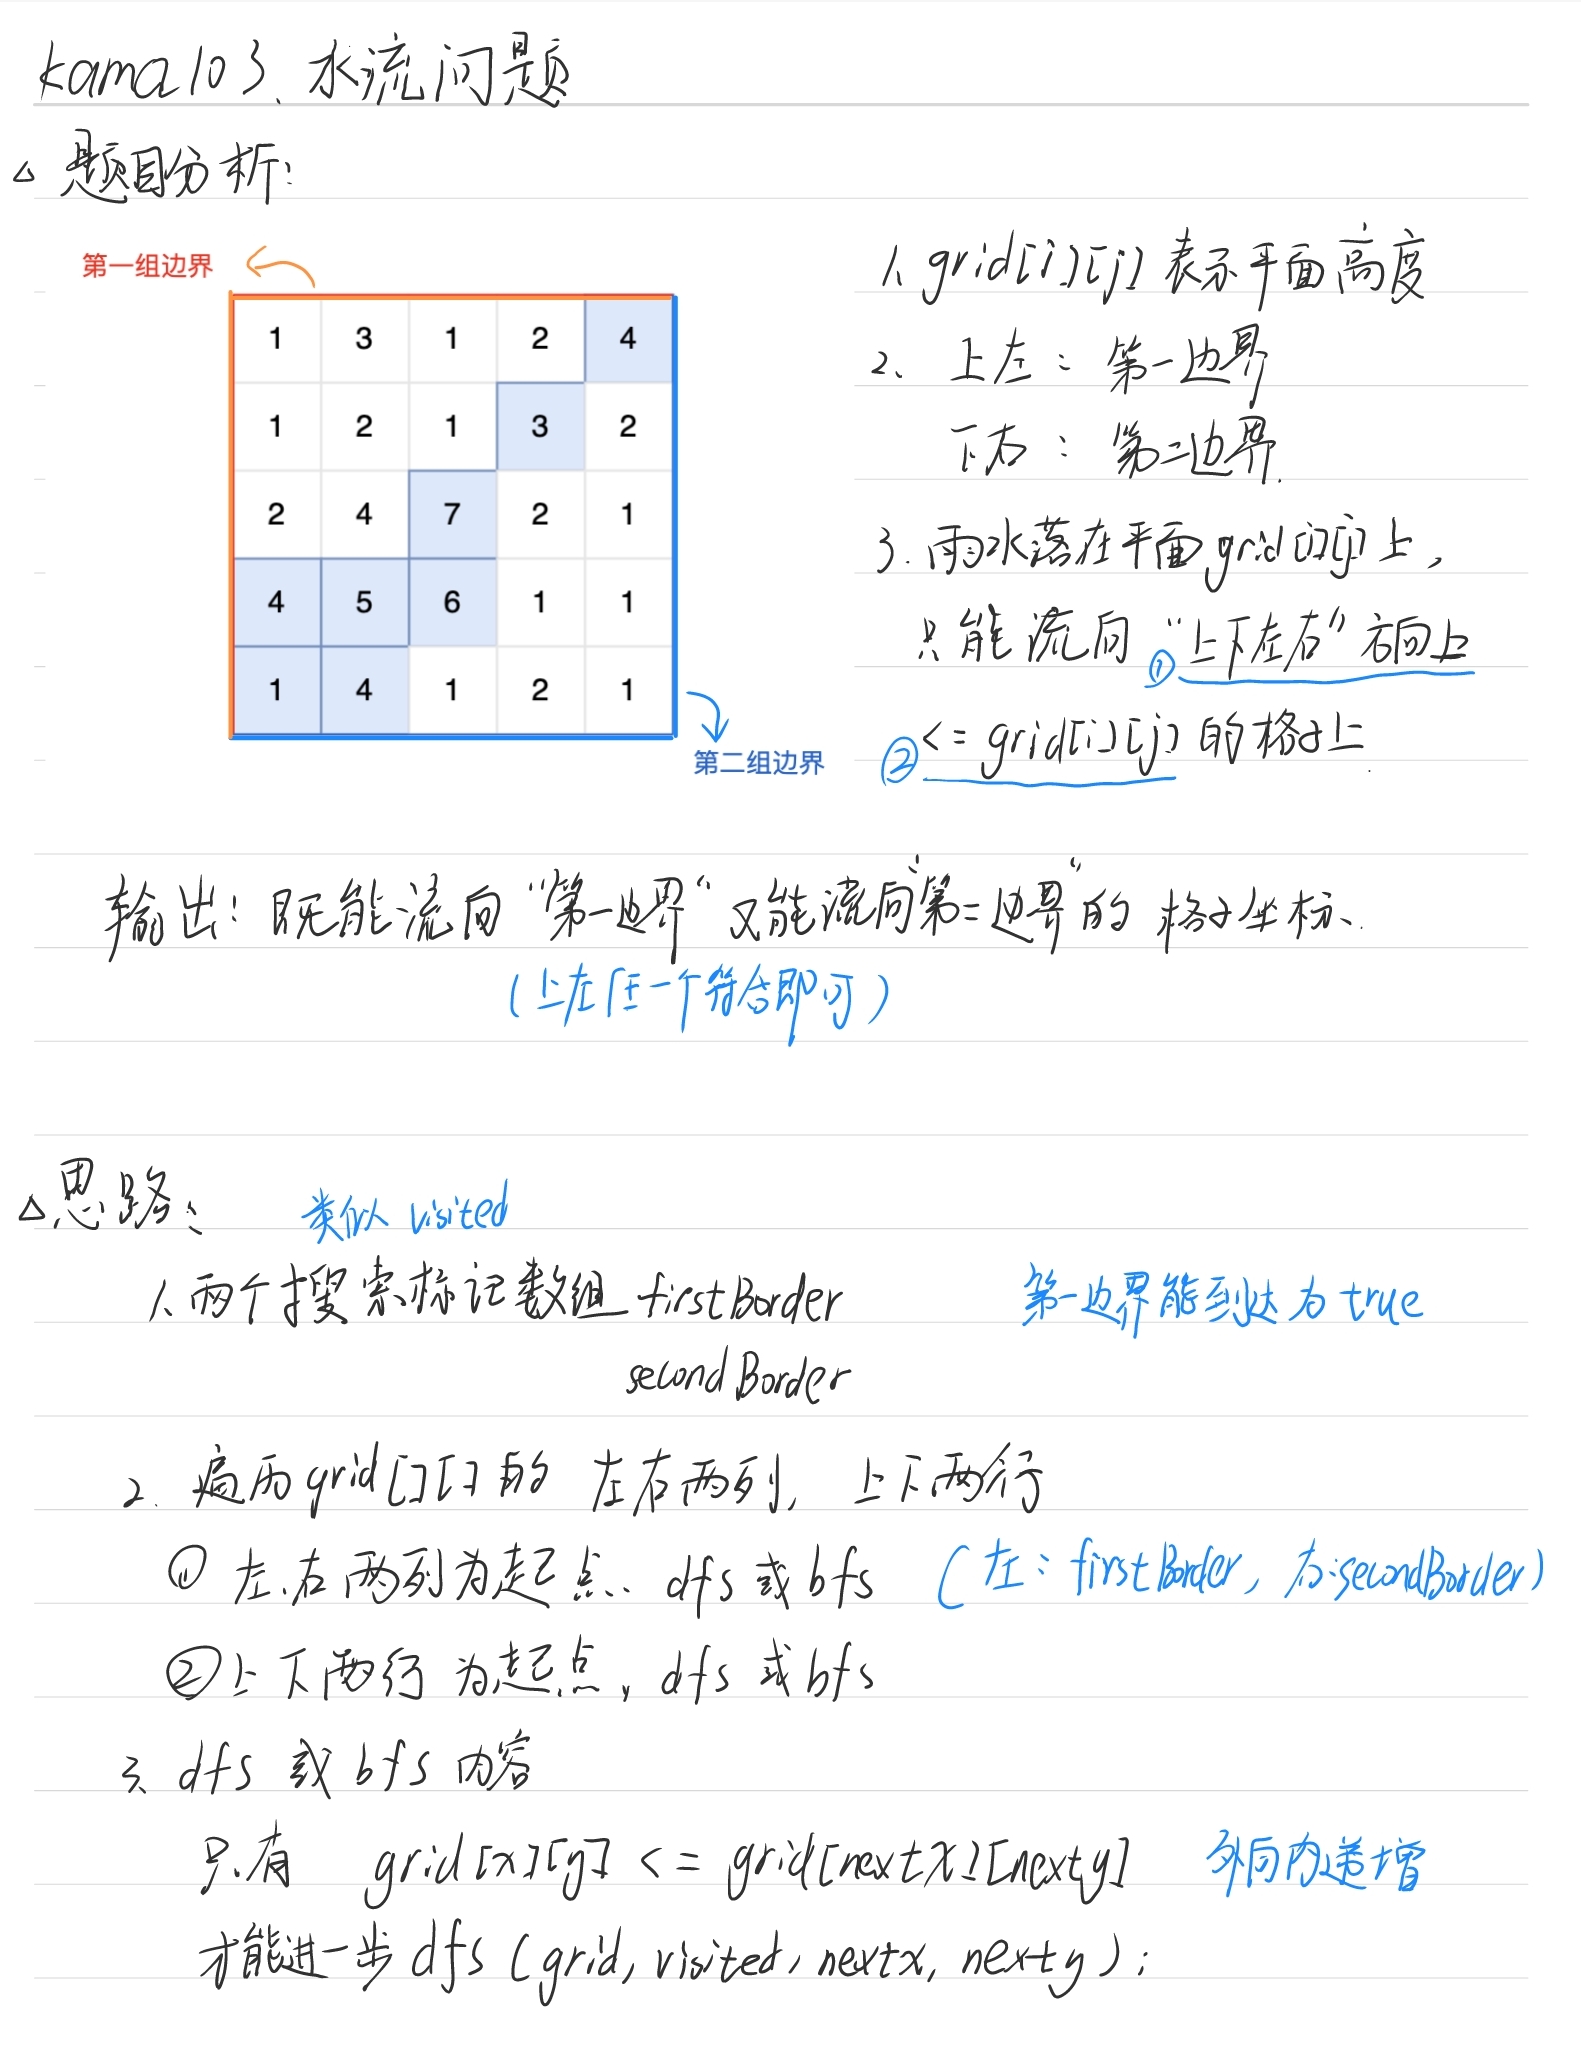 kama103、水流问题
△ 题目分析:
第一组边界
1 3 1 2 4
1 2 1 3 2
2 4 7 2 1
4 5 6 1 1
1 4 1 2 1
第二组边界
1、grid[i][j] 表示平面高度
2、 上左 : 第一边界
下右 : 第二边界.
3. 雨水落在平面grid[i][j]上,
只能流向 “上下左右” 方向上
①
② <= grid[i][j] 的格子上.
输出: 既能流向 “第一边界“ 又能流向“第二边界“的 格子坐标、
(上左任一个符合即可)
△思路:
类似 visited
1、两个搜索标记数组 firstBorder
第一边界能到达为 true
secondBorder
2. 遍历grid[][]的 左右两列, 上下两行
① 左.右两列为起点、dfs 或 bfs (左: firstBorder, 右:secondBorder)
②上下两行 为起点, dfs 或 bfs
3、dfs 或 bfs 内容
只有 grid[x][y] <= grid[nextx][nexty] 外向内递增
才能进一步 dfs (grid, visited, nextx, nexty);